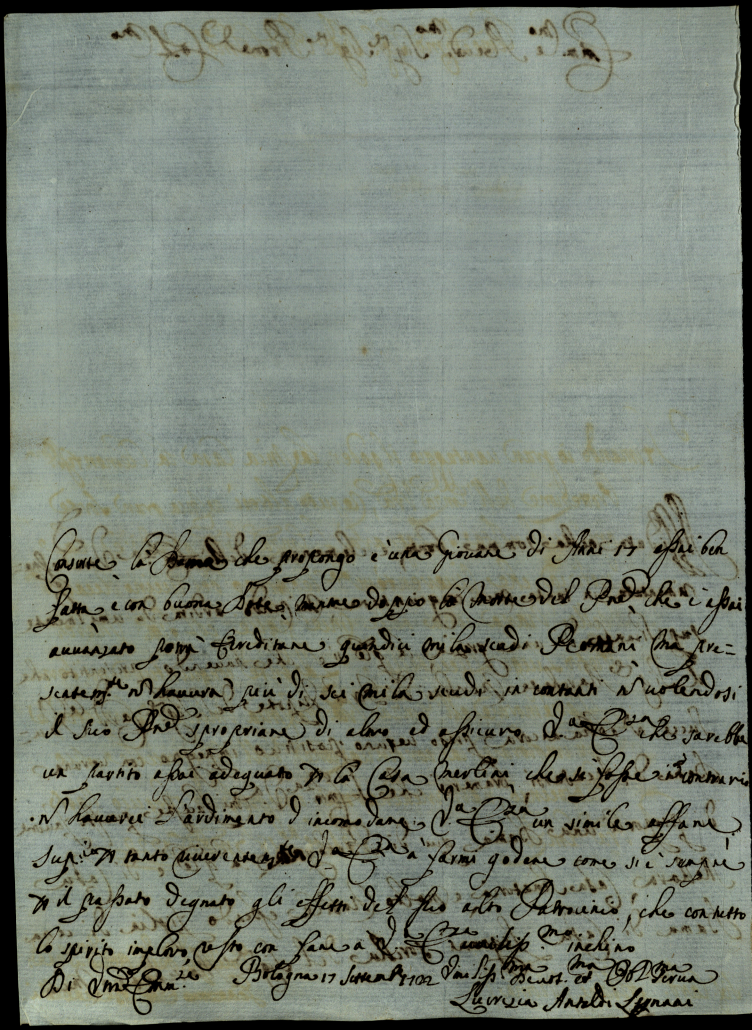 Consorte la Dama che propongo è una Giovane di Anni 17 assai ben
fatta e con buona Dote, mentre doppo la morte del Pad.e che è assai
avvanzato potrà Ereditare quindici mila scudi Romani ma pre=
sentem.te n haverà più di sei mila scudi in contanti n volendosi
il suo Pad.e spropriare di altro ed assicuro V.a Em.za che sarebbe
un partito assai adeguato p la Casa Merlini che se fosse in contrario
n haverei l'ardimento d incomodare V.a Em.za un simile affare
Sup.co p tanto V.a Em.za a farmi godere come si è sempre
p il passato degnato gli effetti del suo alto Patrocinio, che con tutto
lo spirito imploro, resto con fare a V.a Em.za umiliss.mo inchino
Di V.ra Em.za Bologna 17 Settemb 1722 Umiliss.ma Devot. ed Obl.ma Serva
Lucrezia Ansaldi Legnani